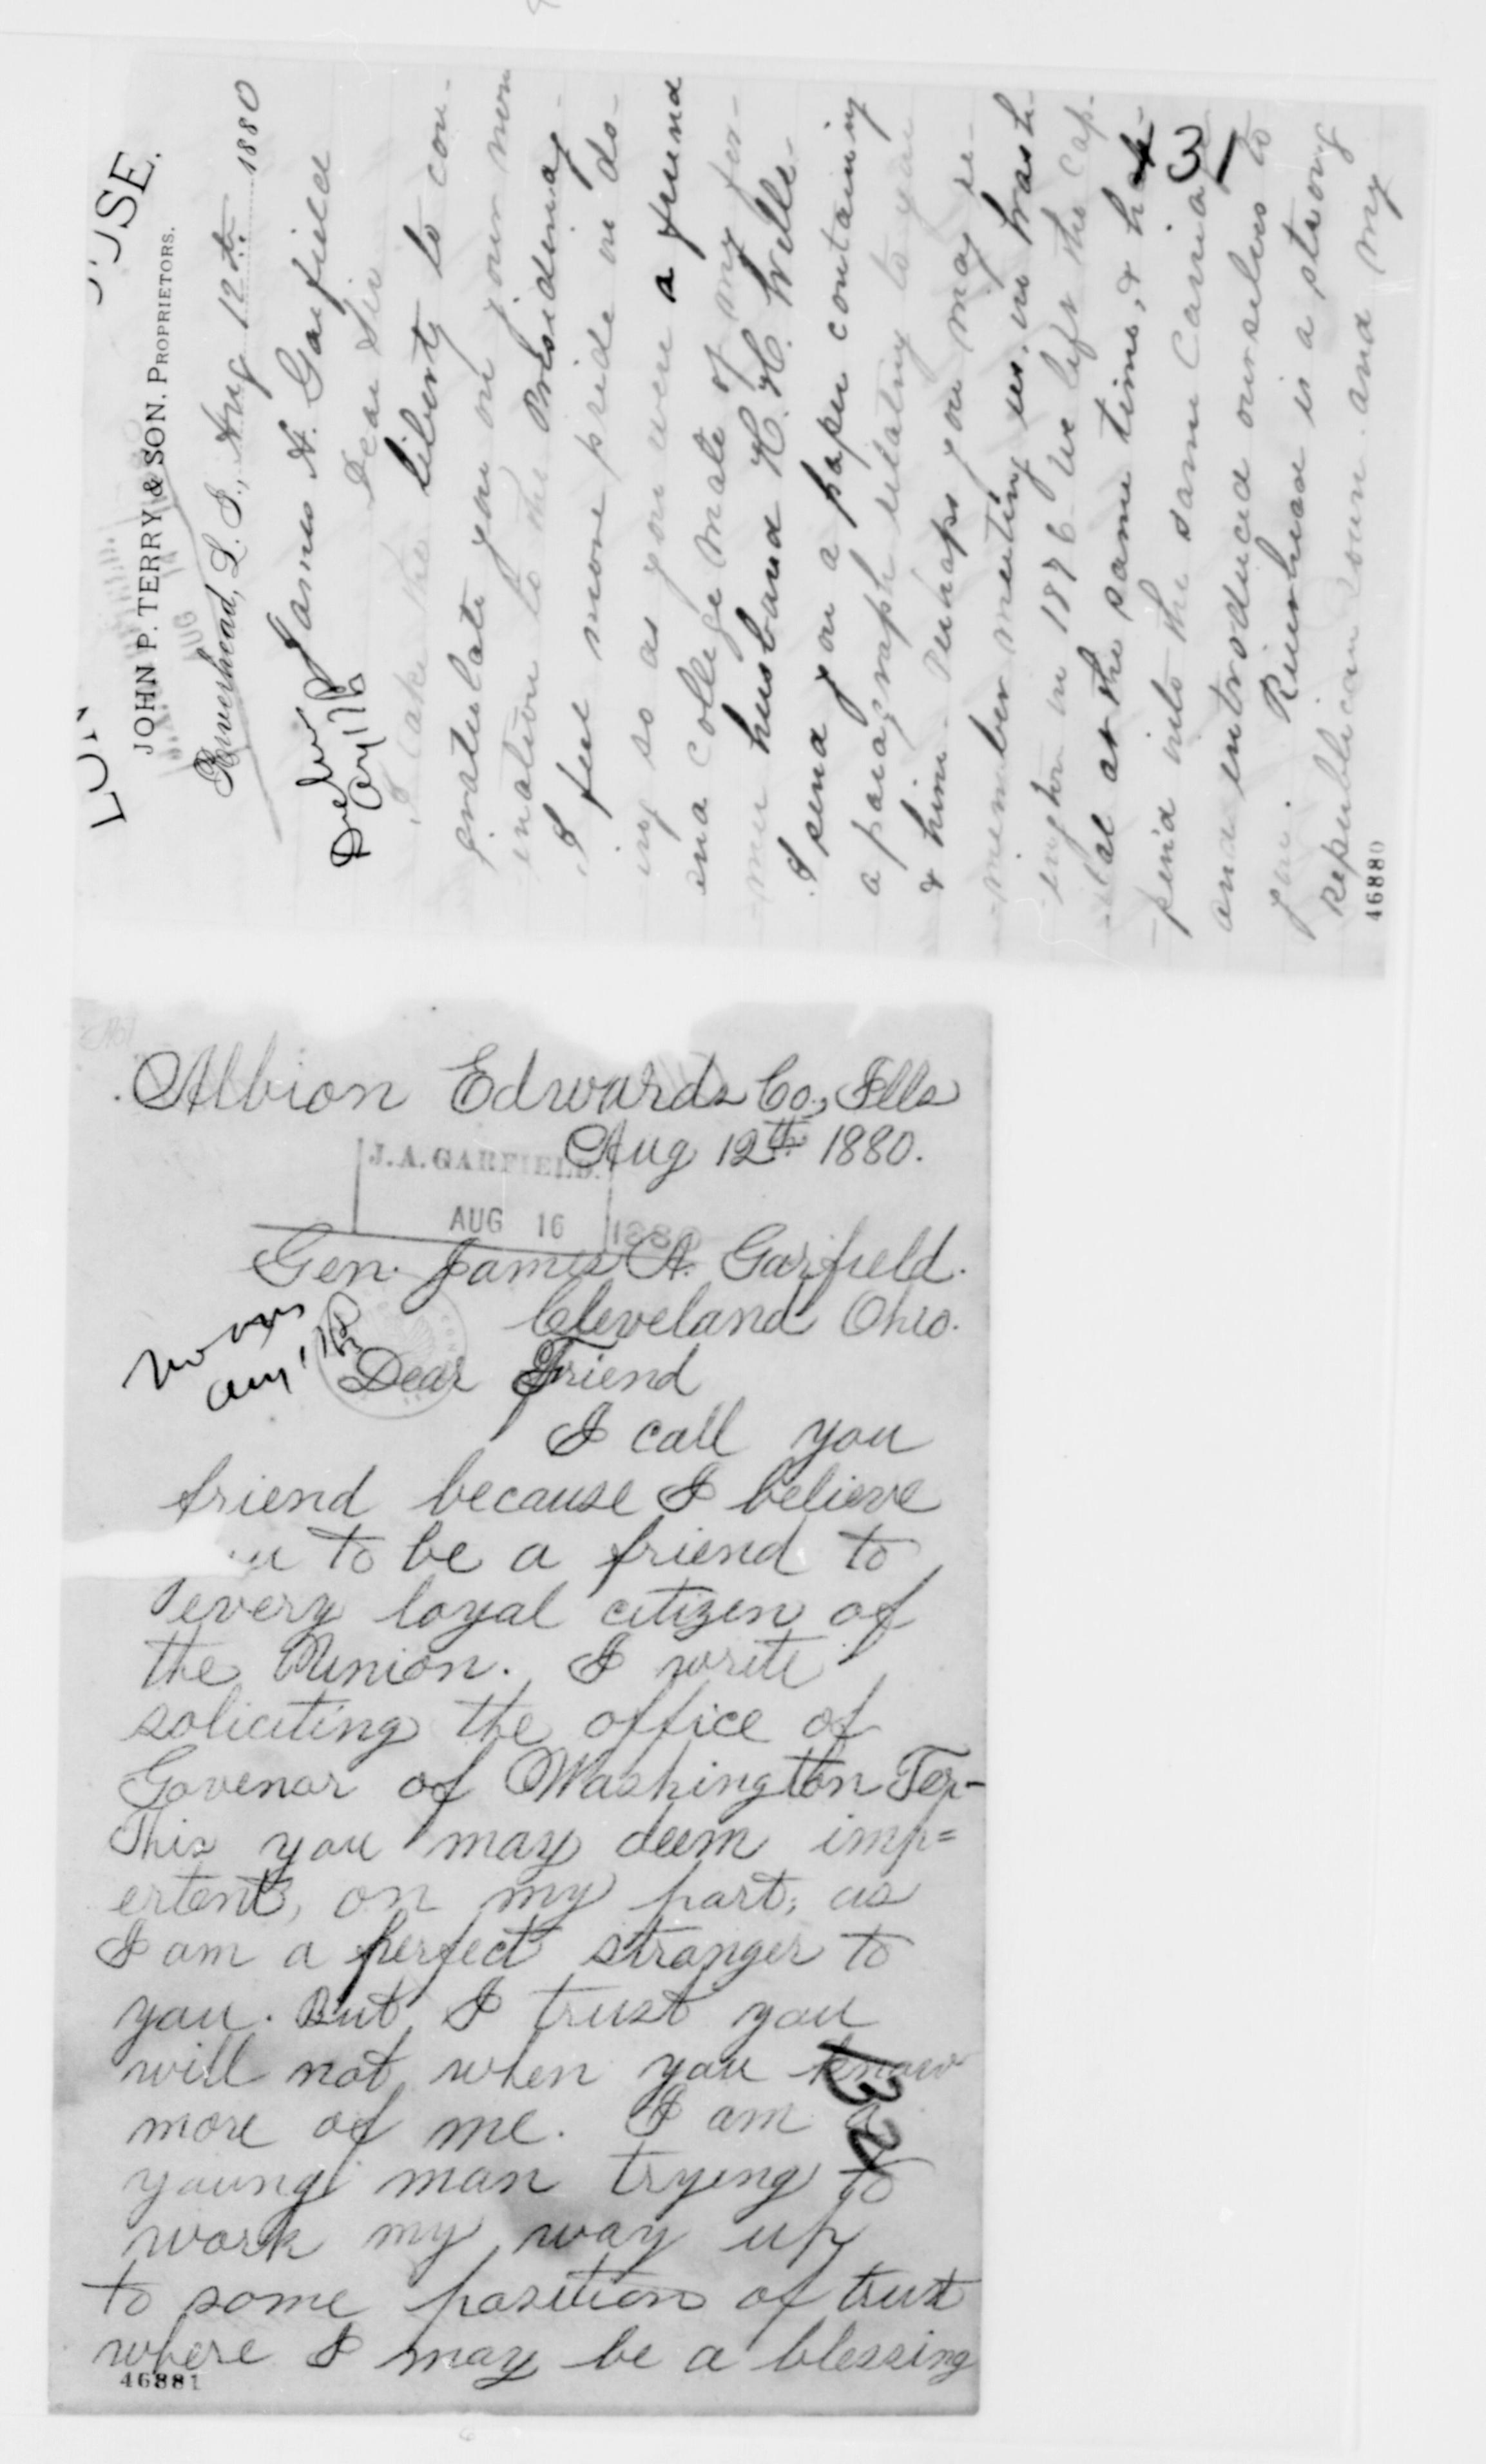 USE.
JOHN P. TERRY & SON, PROPRIETORS.
Riverhead, L. I., Aug 12th 1880
James A. Garfield
Dear Sir
I take the liberty to con-
gratulate you on your nom
ination to the Presidency-
I feel more pride in do-
ing so as you were a friend
and college mate of my for-
mer husband H. H. Wells-
I send you a paper containing
a paragraph relating to you
& him - Perhaps you may re-
member meeting us, in Wash-
ington in 1876. We left the Cap-
ital at the same time, & hap-
pen'd into the same Carriage
and introduced ourselves to
you. Riverhead is a strong
Republican town and my
46880
31
Albion Edwards Co., Ills
Aug 12th 1880.
J.A. GARFIELD.
AUG 16 1880
Gen. James A. Garfield.
Cleveland Ohio.
no ans
Aug 17
Dear Friend
I call you
friend because I believe
to be a friend to
every loyal citizen of
the Union. I write
soliciting the office of
Govenor of Washington Ter-
This you may deem imp=
ertent, on my part, as
I am a perfect stranger to
you. But I trust you
will not when you know
more of me. I am a
young man trying to
work my way up
to some position of trust
where I may be a blessing
46881
32